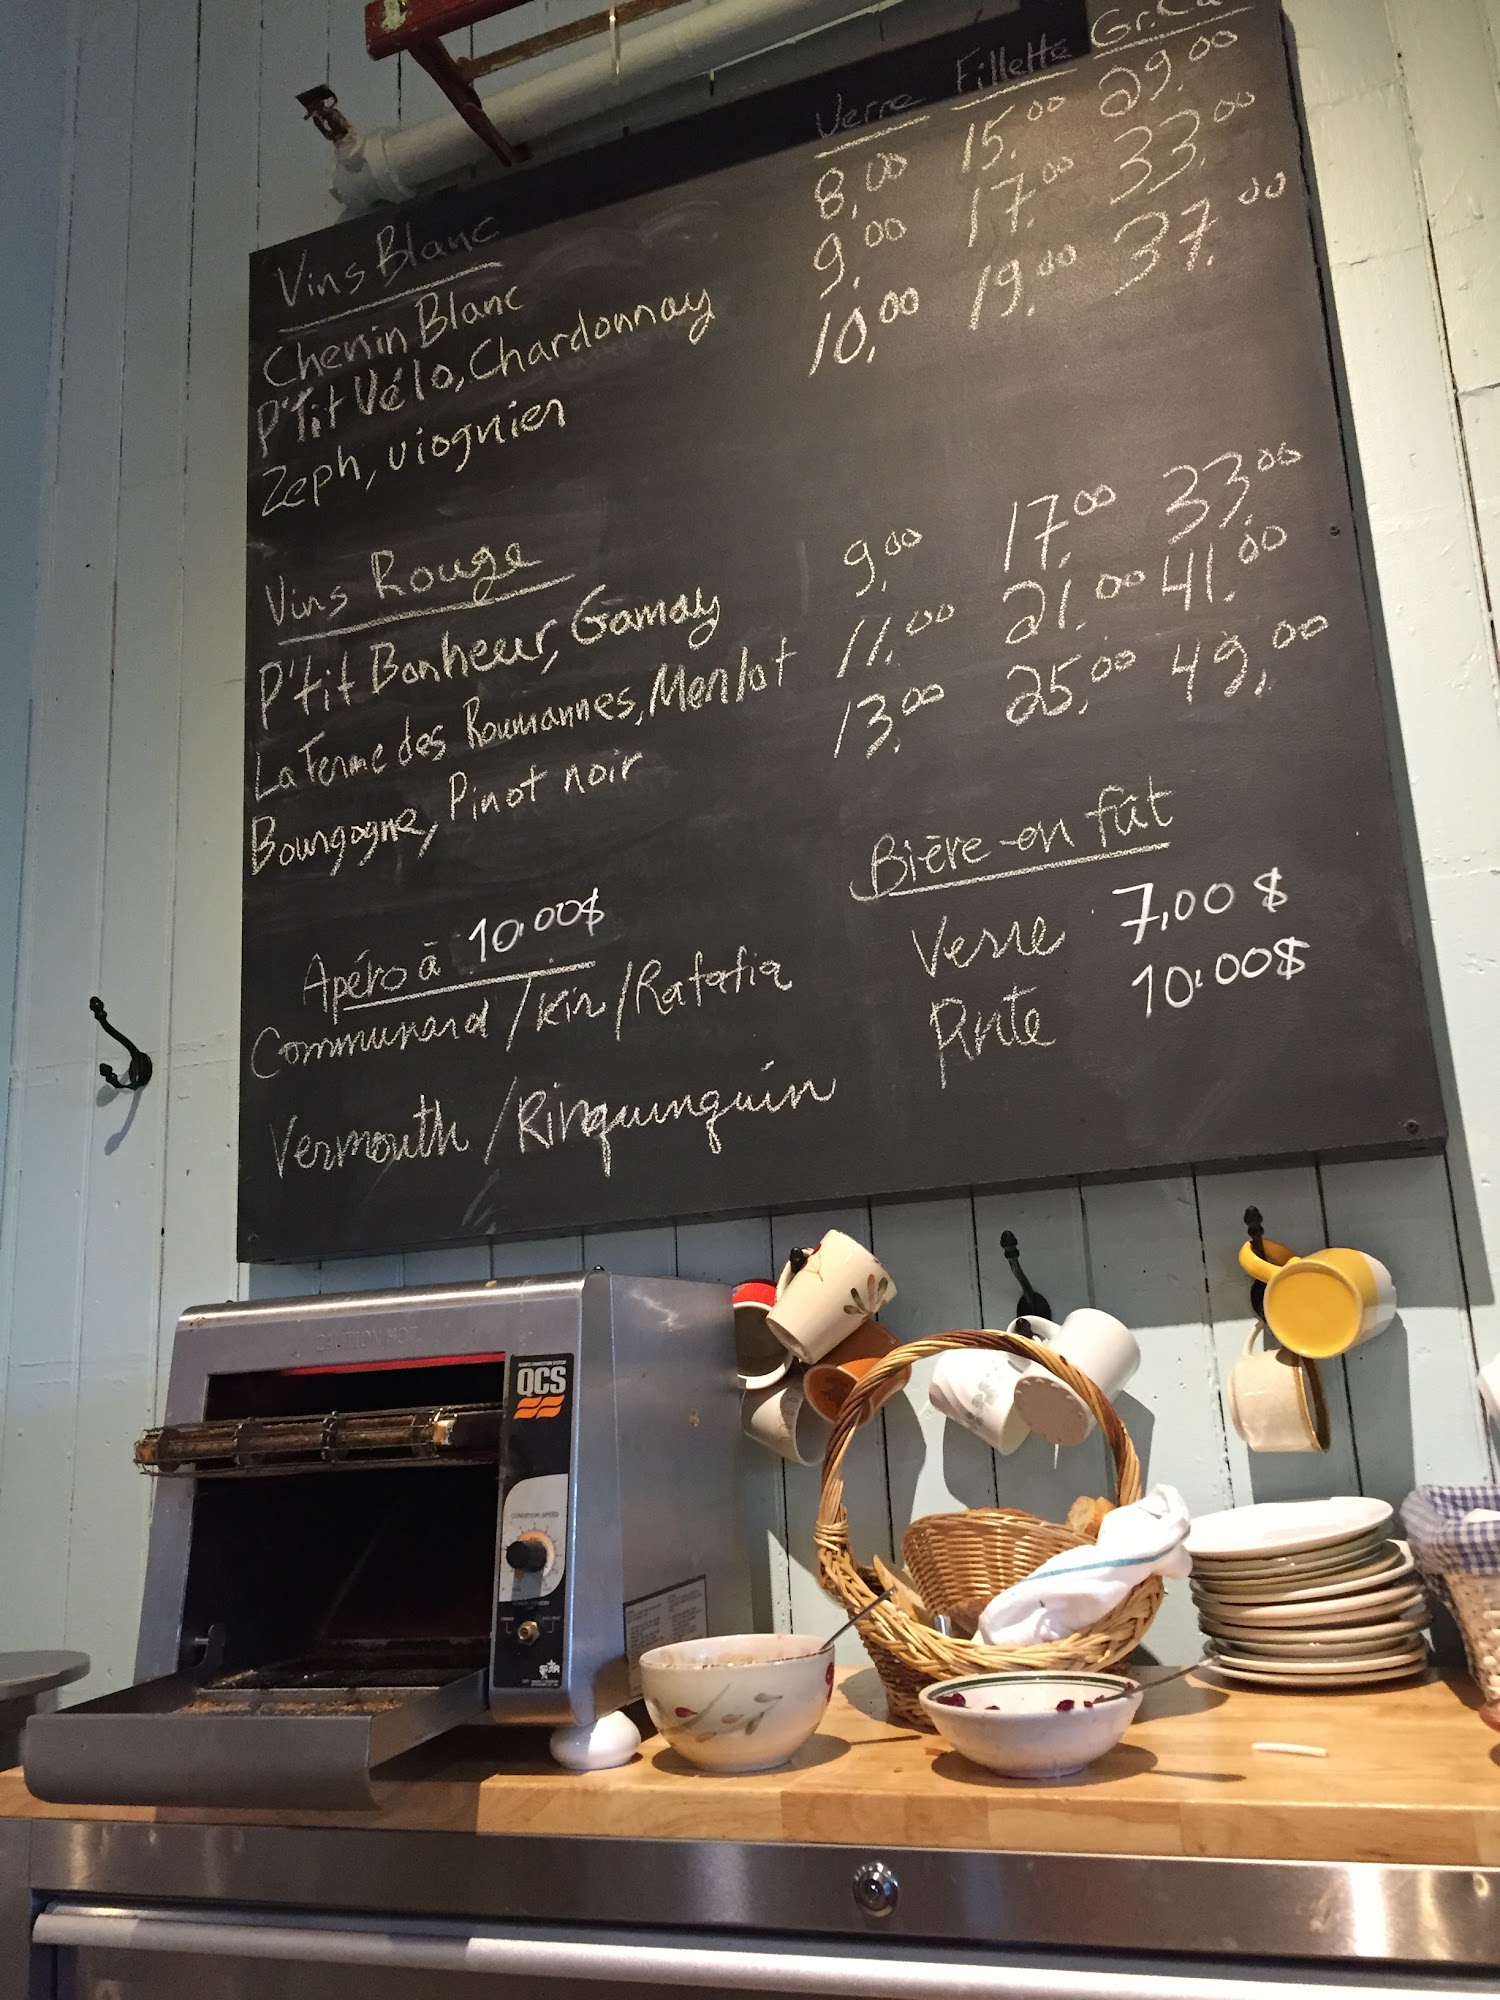 Verre Fillette Gr.Ca
Vins Blanc
Chenin Blanc 8,00 15.00 29.00
P'tit Vélo, Chardonnay 9.00 17.00 33.00
Zeph, viognier 10,00 19.00 37.00
Vins Rouge
P'tit Bonheur, Gamay 9.00 17.00 33.00
La Ferme des Roumannes, Merlot 11.00 21.00 41.00
Bourgogne, Pinot noir 13.00 25,00 49,00
Apéro à 10.00$
Communard / Kir / Ratafia
Vermouth / Rinquinquin
Bière en fût
Verre 7,00$
Pinte 10.00$
CAUTION HOT
QCS
CONVEYOR SPEED
STAR